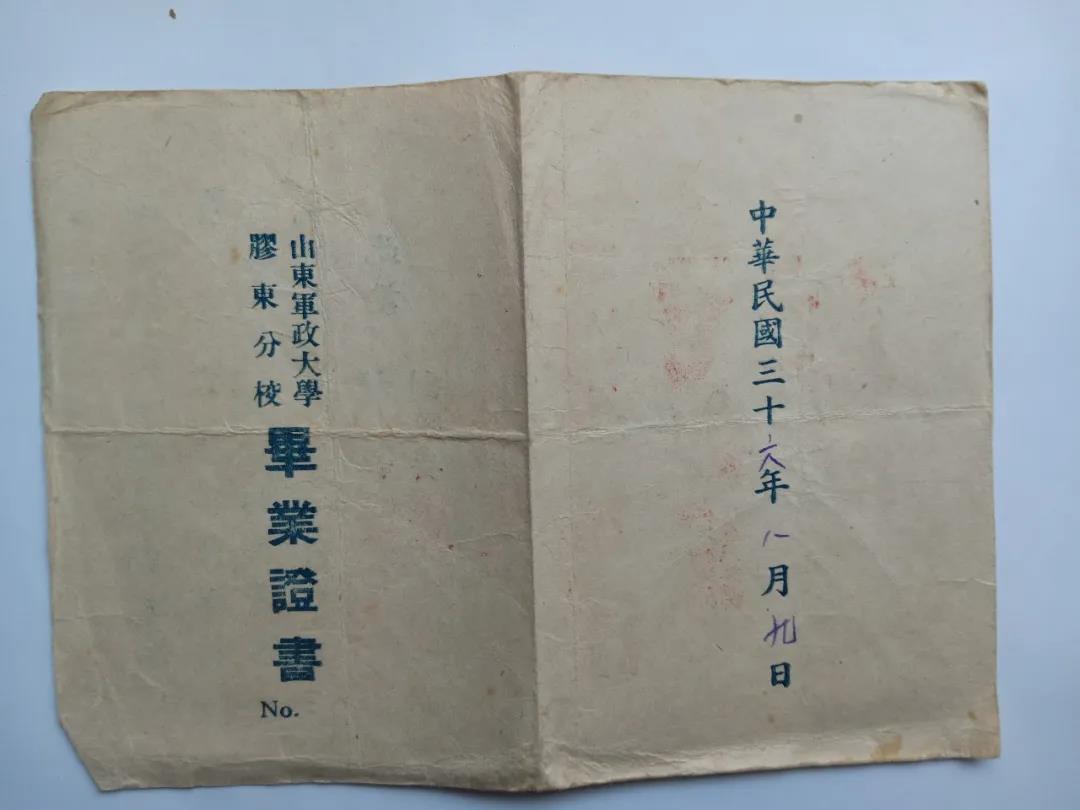 中華民國三十六年八月九日
山東軍政大學
膠東分校
畢業證書
No.